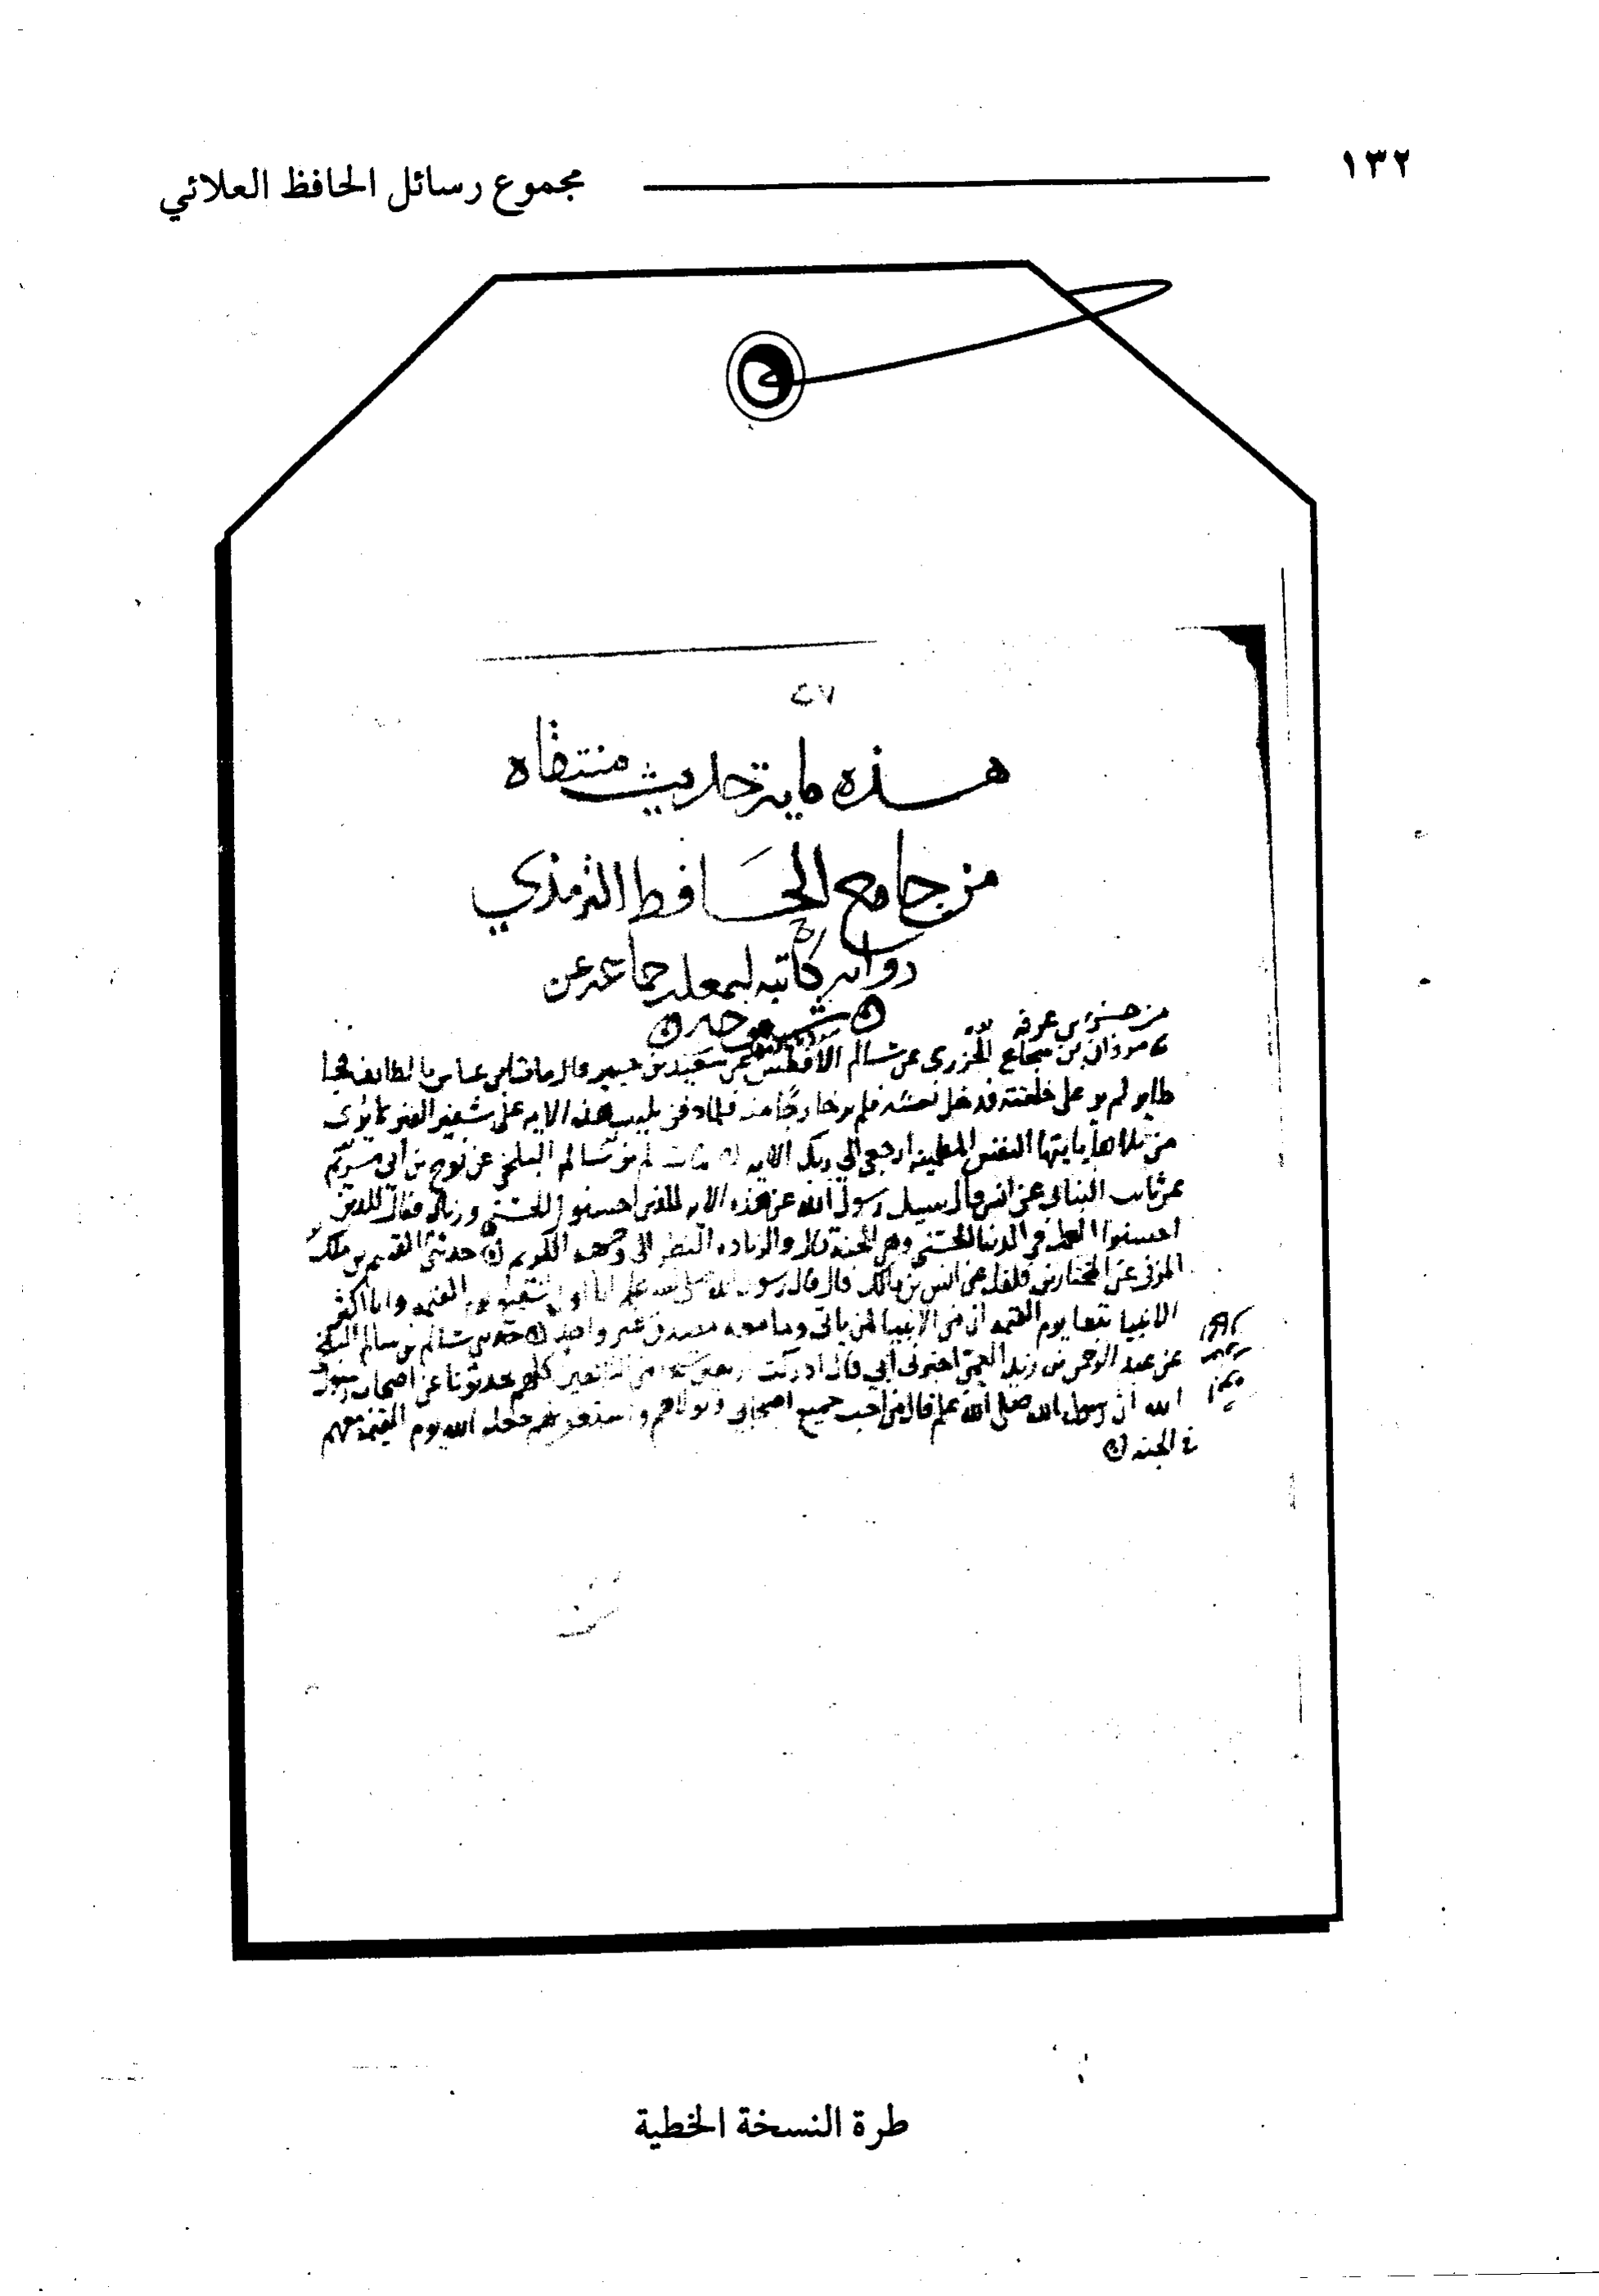 ١٣٢
مجموع رسائل الحافظ العلائي
٤٧
هذه ماية حديث منتقاه
من جامع الحافظ الترمذي
رواية كاتبه لجماعة عن
شيوخه
من جزء بن عرفه
مروان بن شجاع الجزري عن سالم الافطس عن سعيد بن جبير قال مات ابن عباس بالطايف فجا
طاير لم ير على خلقته فدخل نعشه فلم ير خارجا منه فلما دفن تليت هذه الايه على شفير القبر لا يرى
من تلاها يايتها النفس المطمينه ارجعي الى ربك الايه سلم بن سالم البلخي عن نوح بن ابي مريم
عن ثابت البناني عن انس قال سيل رسول الله عن هذه الايه للذين احسنوا الحسنى وزيادة فقال للذين
احسنوا العمل في الدنيا الحسنى وهي الجنة قال والزياده النظر الى وجهه الكريم حدثني القسم بن ملك
المزني عن المختار بن فلفل عن انس بن مالك قال قال رسول الله صلى الله عليه انا اول شفيع يوم القيمه وانا اكثر
الانبيا تبعا يوم القيمه ان من الانبيا لمن ياتي وما معه مصدق غير واحد حدثني سلم بن سالم البلخي
عن عبد الرحمن بن زيد العمي اخبرني ابي قال ادركت اربعين شيخا من التابعين كلهم يحدثونا عن اصحاب رسول
الله ان رسول الله صلى الله عليه قال من احب جميع اصحابي وتولاهم واستغفر لهم جعله الله يوم القيمة معهم
في الجنه
طرة النسخة الخطية